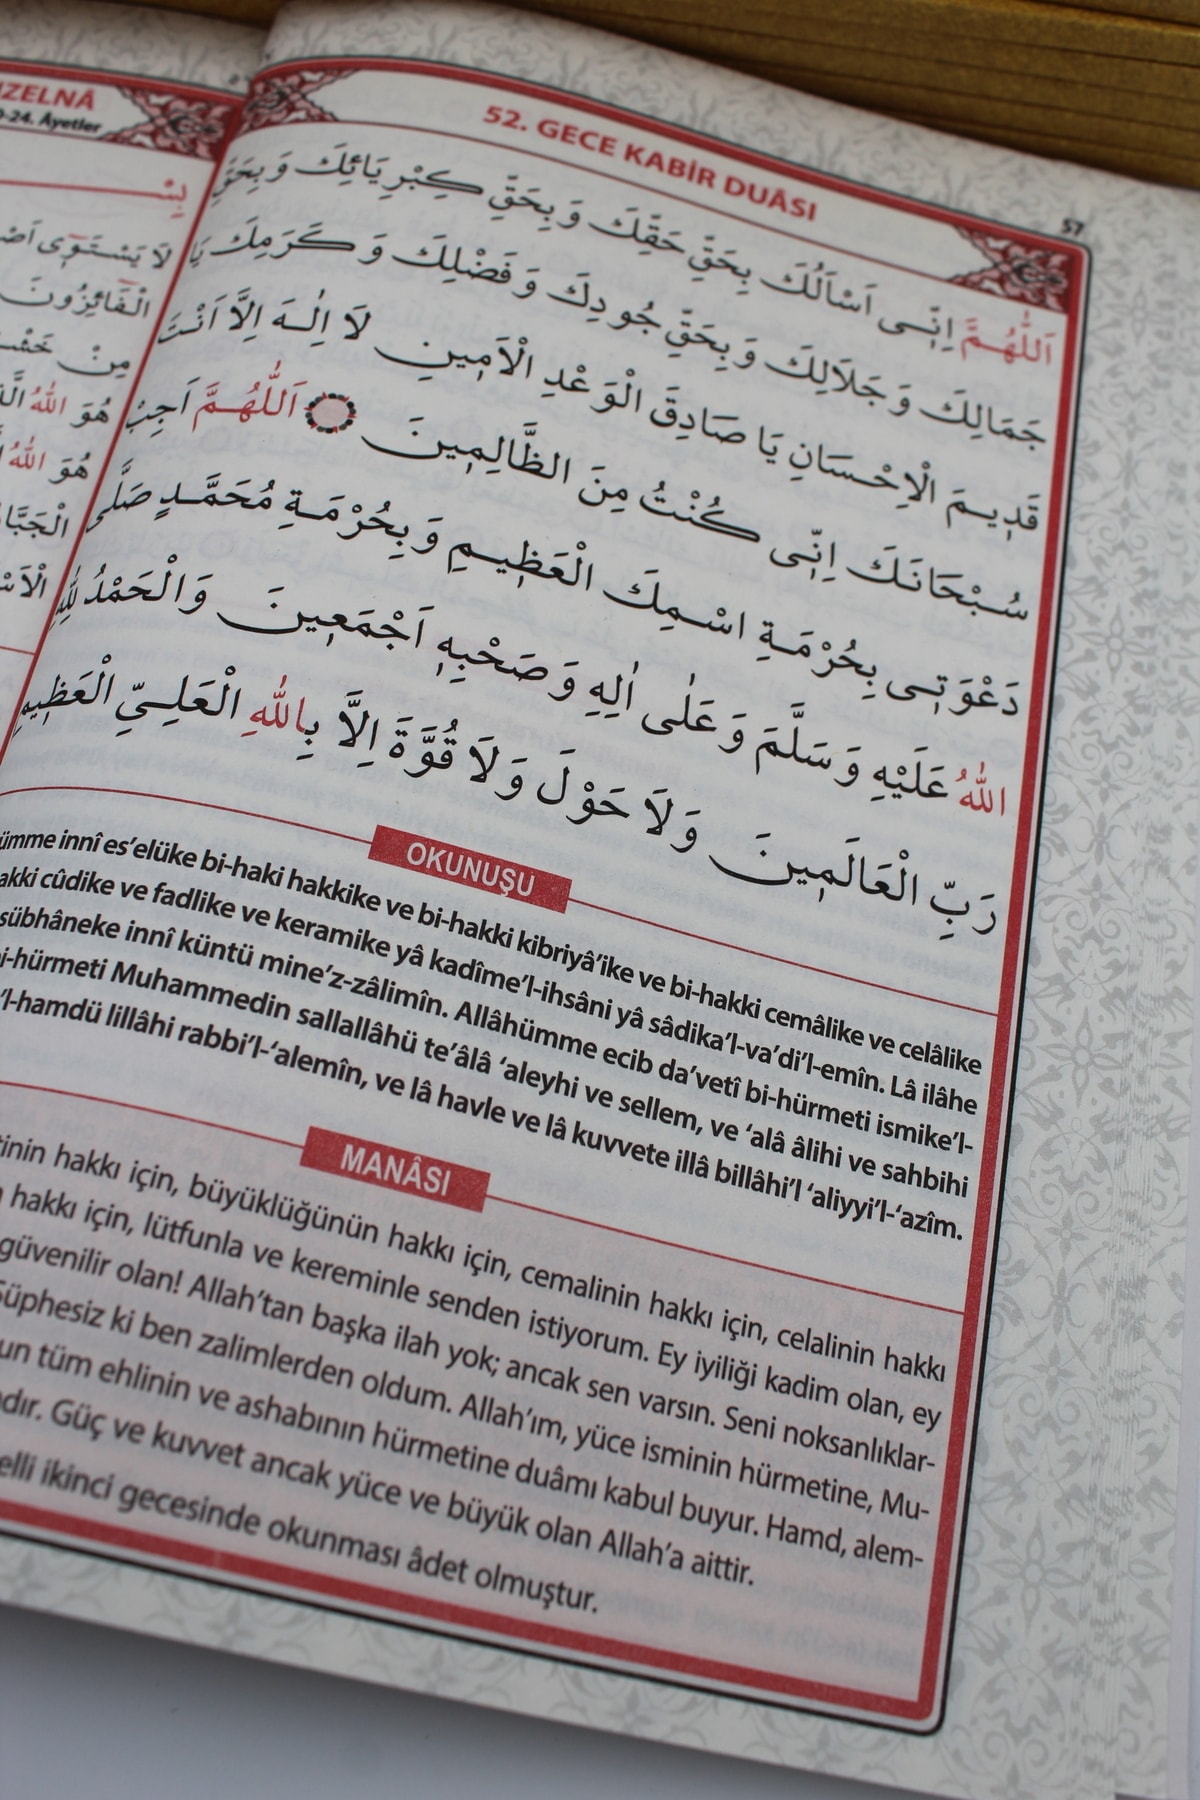 IZELNÂ
0-24. Âyetler
لَا يَسْتَوِٓى
الْفَائِزُونَ
مِنْ
هُوَ اللّٰهُ
هُوَ اللّٰهُ
52. GECE KABİR DUÂSI
57
اَللّٰهُمَّ اِنِّى اَسْاَلُكَ بِحَقِّ حَقِّكَ وَ بِحَقِّ كِبْرِيَائِكَ وَ بِحَقِّ
جَمَالِكَ وَ جَلَالِكَ وَ بِحَقِّ جُودِكَ وَ فَضْلِكَ وَ كَرَمِكَ يَا
قَدِيمَ الْاِحْسَانِ يَا صَادِقَ الْوَعْدِ الْاَمِينِ لَا اِلٰهَ اِلَّا اَنْتَ
سُبْحَانَكَ اِنِّى كُنْتُ مِنَ الظَّالِمِينَ اَللّٰهُمَّ اَجِبْ
دَعْوَتِى بِحُرْمَةِ اسْمِكَ الْعَظِيمِ وَ بِحُرْمَةِ مُحَمَّدٍ صَلَّى
اللّٰهُ عَلَيْهِ وَ سَلَّمَ وَ عَلٰى اٰلِهِ وَ صَحْبِهِ اَجْمَعِينَ وَالْحَمْدُ لِلّٰهِ
رَبِّ الْعَالَمِينَ وَلَا حَوْلَ وَلَا قُوَّةَ اِلَّا بِاللّٰهِ الْعَلِىِّ الْعَظِيمِ
OKUNUŞU
ümme innî es’elüke bi-haki hakkike ve bi-hakki kibriyâ’ike ve bi-hakki cemâlike ve celâlike
akki cûdike ve fadlike ve keramike yâ kadîme’l-ihsâni yâ sâdika’l-va’di’l-emîn. Lâ ilâhe
sübhâneke innî küntü mine’z-zâlimîn. Allâhümme ecib da’vetî bi-hürmeti ismike’l-
i-hürmeti Muhammedin sallallâhü te’âlâ ‘aleyhi ve sellem, ve ‘alâ âlihi ve sahbihi
’l-hamdü lillâhi rabbi’l-‘alemîn, ve lâ havle ve lâ kuvvete illâ billâhi’l ‘aliyyi’l-‘azîm.
MANÂSI
tinin hakkı için, büyüklüğünün hakkı için, cemalinin hakkı için, celalinin hakkı
hakkı için, lütfunla ve kereminle senden istiyorum. Ey iyiliği kadim olan, ey
güvenilir olan! Allah’tan başka ilah yok; ancak sen varsın. Seni noksanlıklar-
Şüphesiz ki ben zalimlerden oldum. Allah’ım, yüce isminin hürmetine, Mu-
un tüm ehlinin ve ashabının hürmetine duâmı kabul buyur. Hamd, alem-
dır. Güç ve kuvvet ancak yüce ve büyük olan Allah’a aittir.
elli ikinci gecesinde okunması âdet olmuştur.